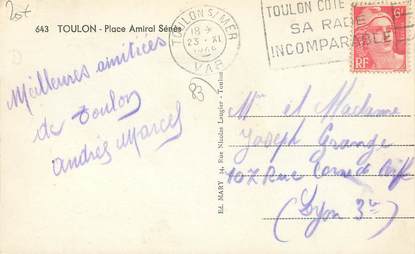 20f
643 TOULON - Place Amiral Sénès
TOULON S/MER
18 -
23 - XI
VAR
TOULON COTE
SA RADE
INCOMPARABLE
6F
RF
83
Meilleures amitiées
de Toulon
Andrés Marcel
Ed. MARY 34, Rue Nicolas Laugier - Toulon
M. et Madame
Joseph Grange
107 Rue
Lyon 3e